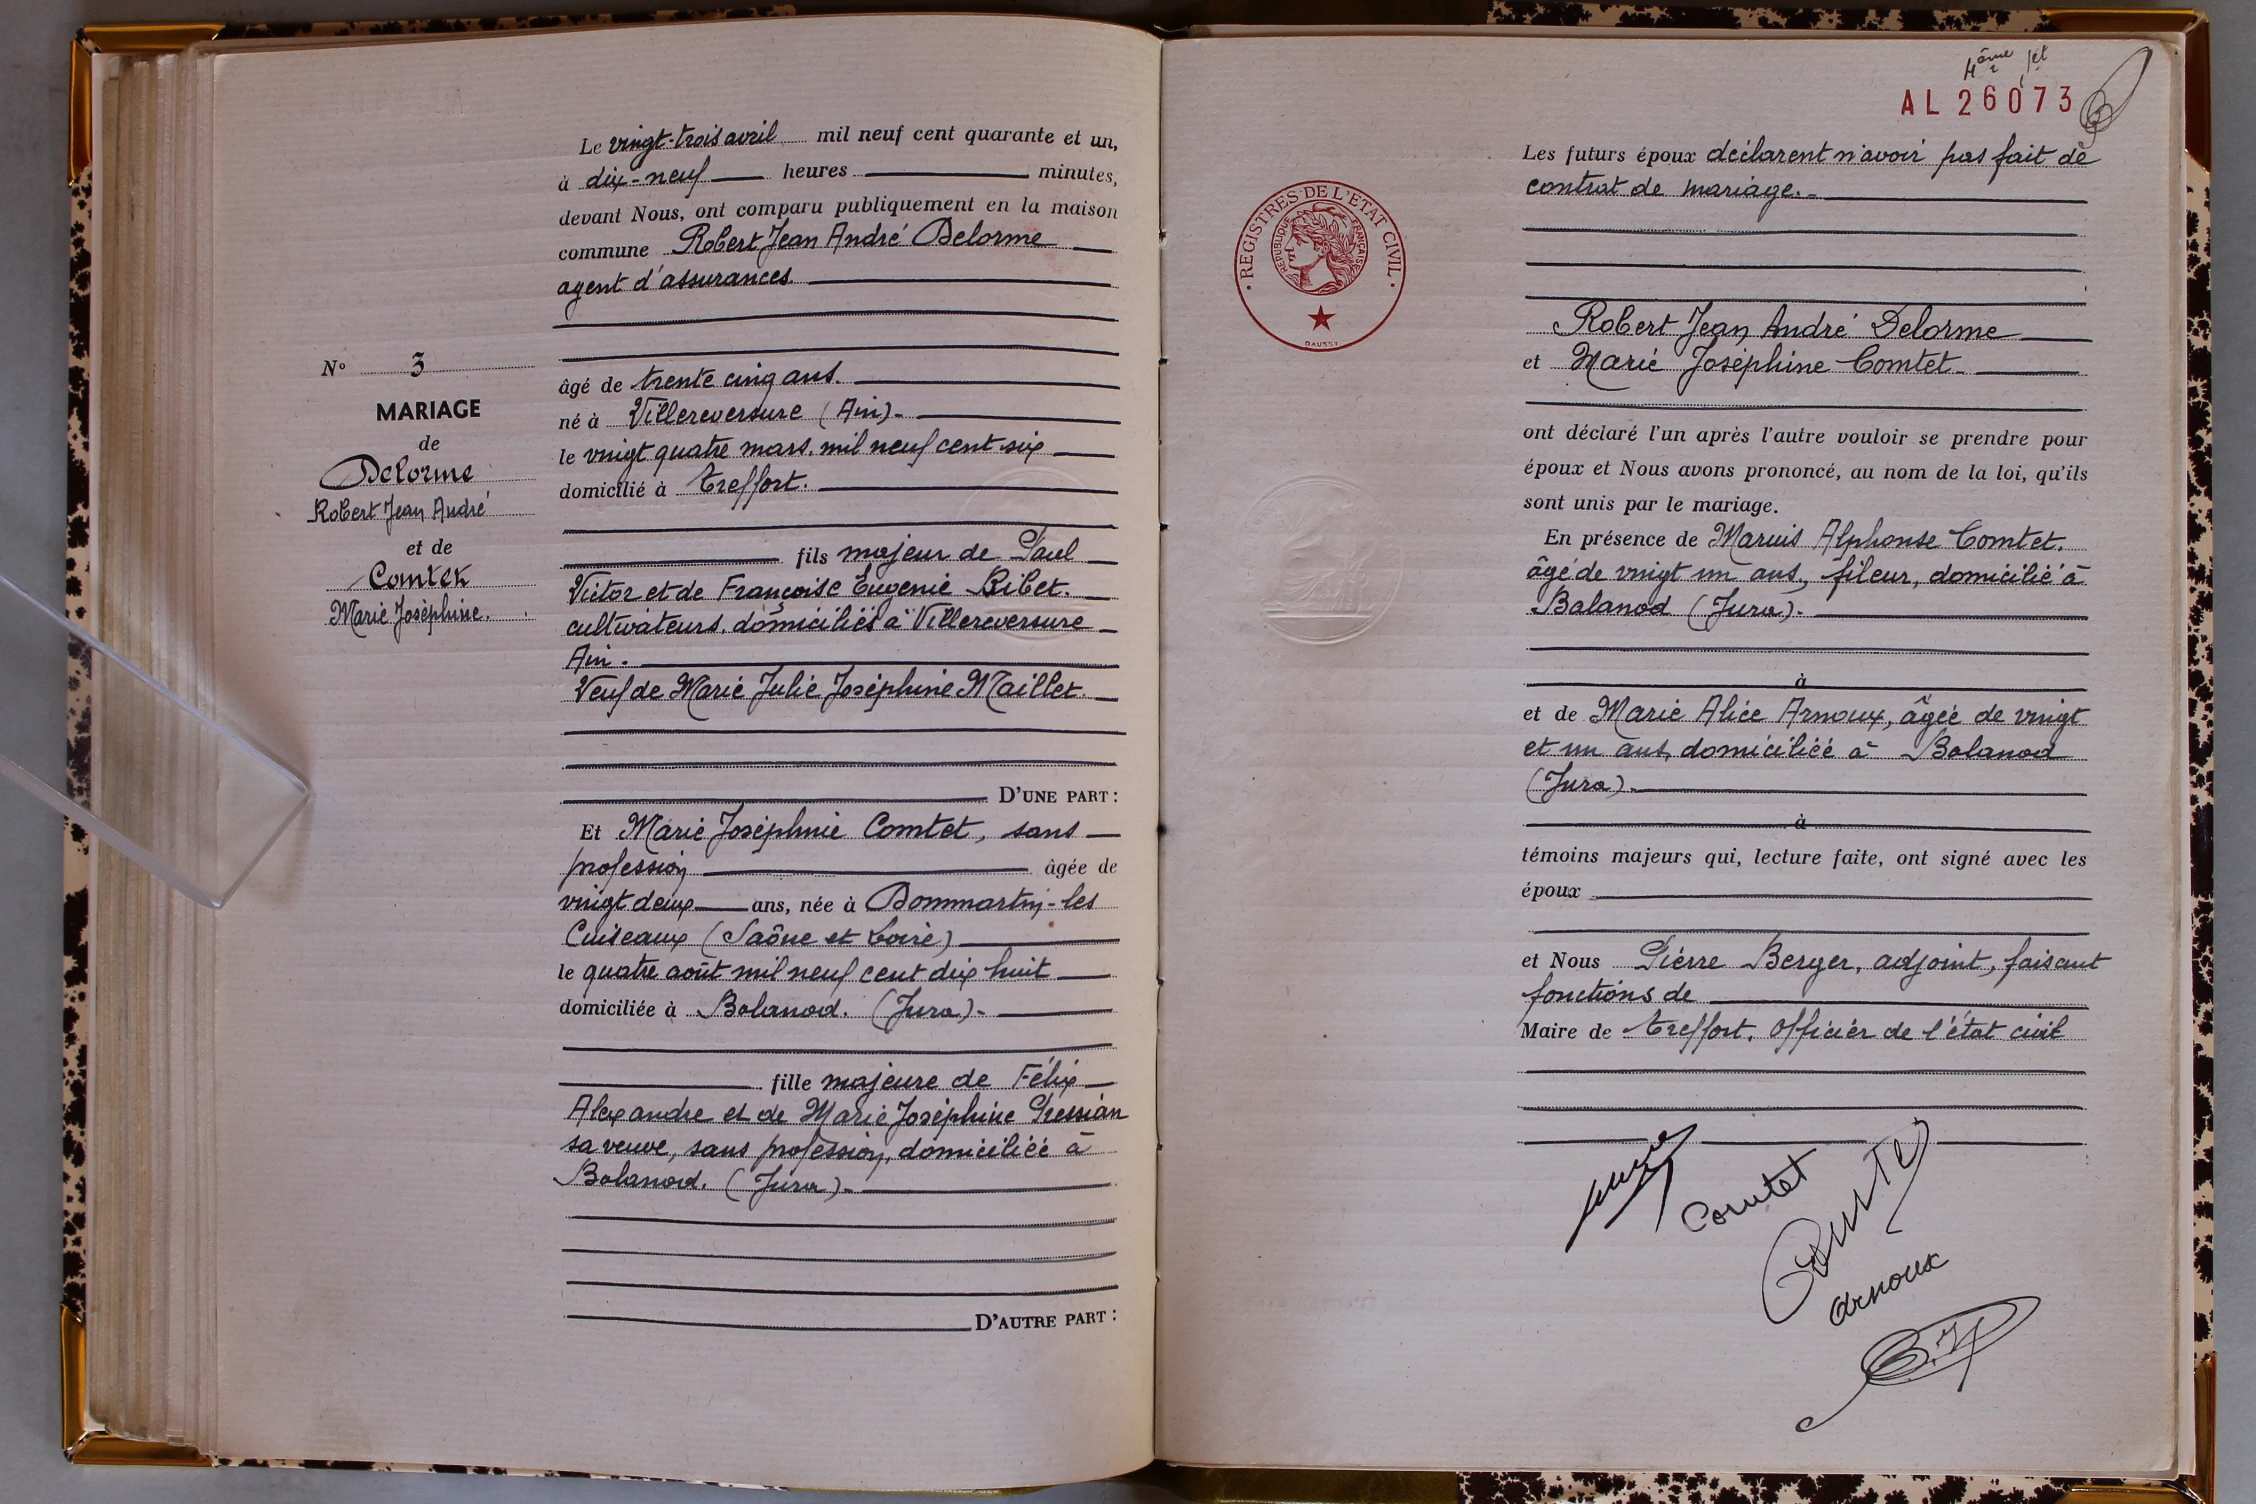 Le vingt-trois avril mil neuf cent quarante et un,
à dix-neuf heures minutes,
devant Nous, ont comparu publiquement en la maison
commune Robert Jean André Delorme
agent d'assurances.
âgé de trente cinq ans.
né à Villereversure (Ain).
le vingt quatre mars. mil neuf cent six
domicilié à Treffort.
fils majeur de Paul
Victor et de Françoise Eugenie Ribet.
cultivateurs. domiciliés à Villereversure
Ain.
Veuf de Marie Julie Joséphine Maillet.
D'UNE PART :
Et Marie Joséphine Comtet, sans
profession âgée de
vingt deux ans, née à Dommartin-les
Cuiseaux (Saône et Loire)
le quatre août mil neuf cent dix huit
domiciliée à Balanod. (Jura).
fille majeure de Félix
Alexandre et de Marie Joséphine Gressian
sa veuve, sans profession, domiciliée à
Balanod. (Jura).
D'AUTRE PART :
N° 3
MARIAGE
de
Delorme
Robert Jean André
et de
Comtet
Marie Joséphine.
AL 26073
REGISTRES·DE L'ÉTAT CIVIL
RÉPUBLIQUE FRANÇAISE
DAUSSY
Les futurs époux déclarent n'avoir pas fait de
contrat de mariage.
Robert Jean André Delorme
et Marie Joséphine Comtet
ont déclaré l'un après l'autre vouloir se prendre pour
époux et Nous avons prononcé, au nom de la loi, qu'ils
sont unis par le mariage.
En présence de Marius Alphonse Comtet.
âgé de vingt un ans, fileur, domicilié à
Balanod (Jura).
à
et de Marie Alice Arnoux, âgée de vingt
et un ans, domiciliée à Balanod
(Jura).
à
témoins majeurs qui, lecture faite, ont signé avec les
époux
et Nous Pierre Berger, adjoint, faisant
fonctions de
Maire de Treffort. Officier de l'état civil
Comtet
Comtet
Arnoux